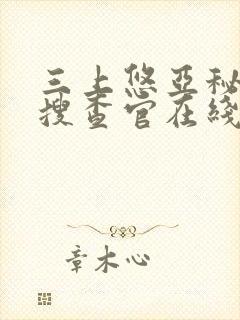 三上悠亚秘
搜查官在线
章木心